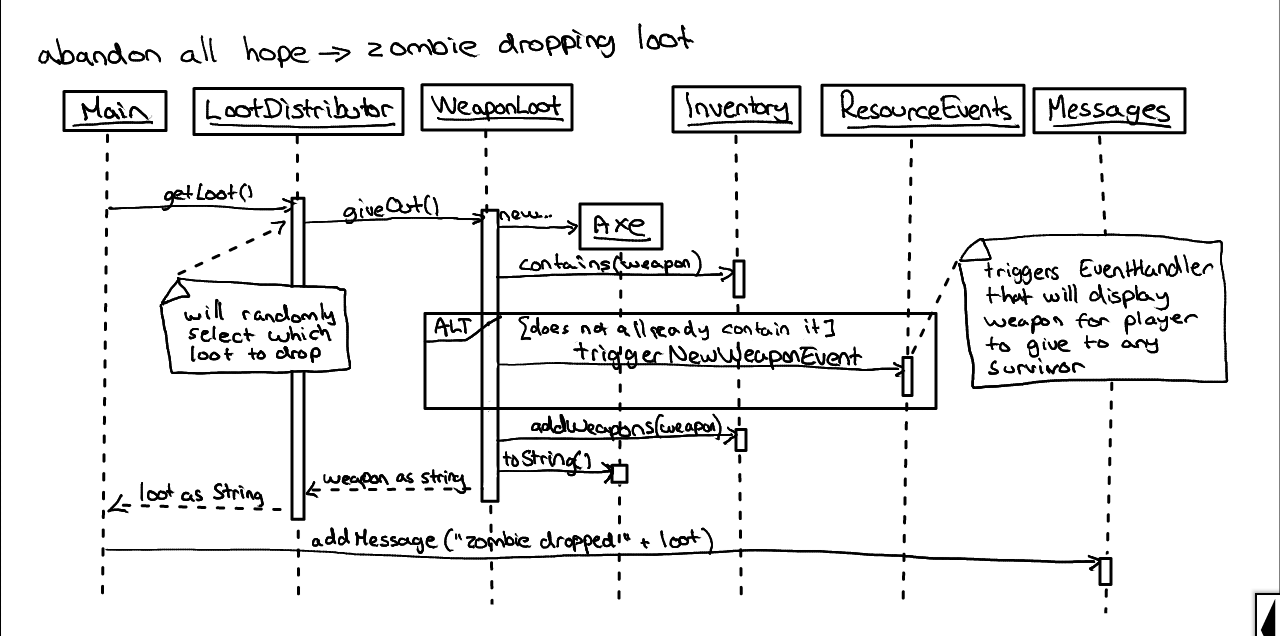 abandon all hope → zombie dropping loot
Main
LootDistributor
WeaponLoot
Inventory
ResourceEvents
Messages
getLoot()
giveOut()
new...
Axe
contains(weapon)
will randomly
select which
loot to drop
triggers EventHandler
that will display
weapon for player
to give to any
survivor
ALT
[does not allready contain it]
triggerNewWeaponEvent
addWeapons(weapon)
toString()
weapon as string
loot as String
addMessage ("zombie dropped!" + loot)